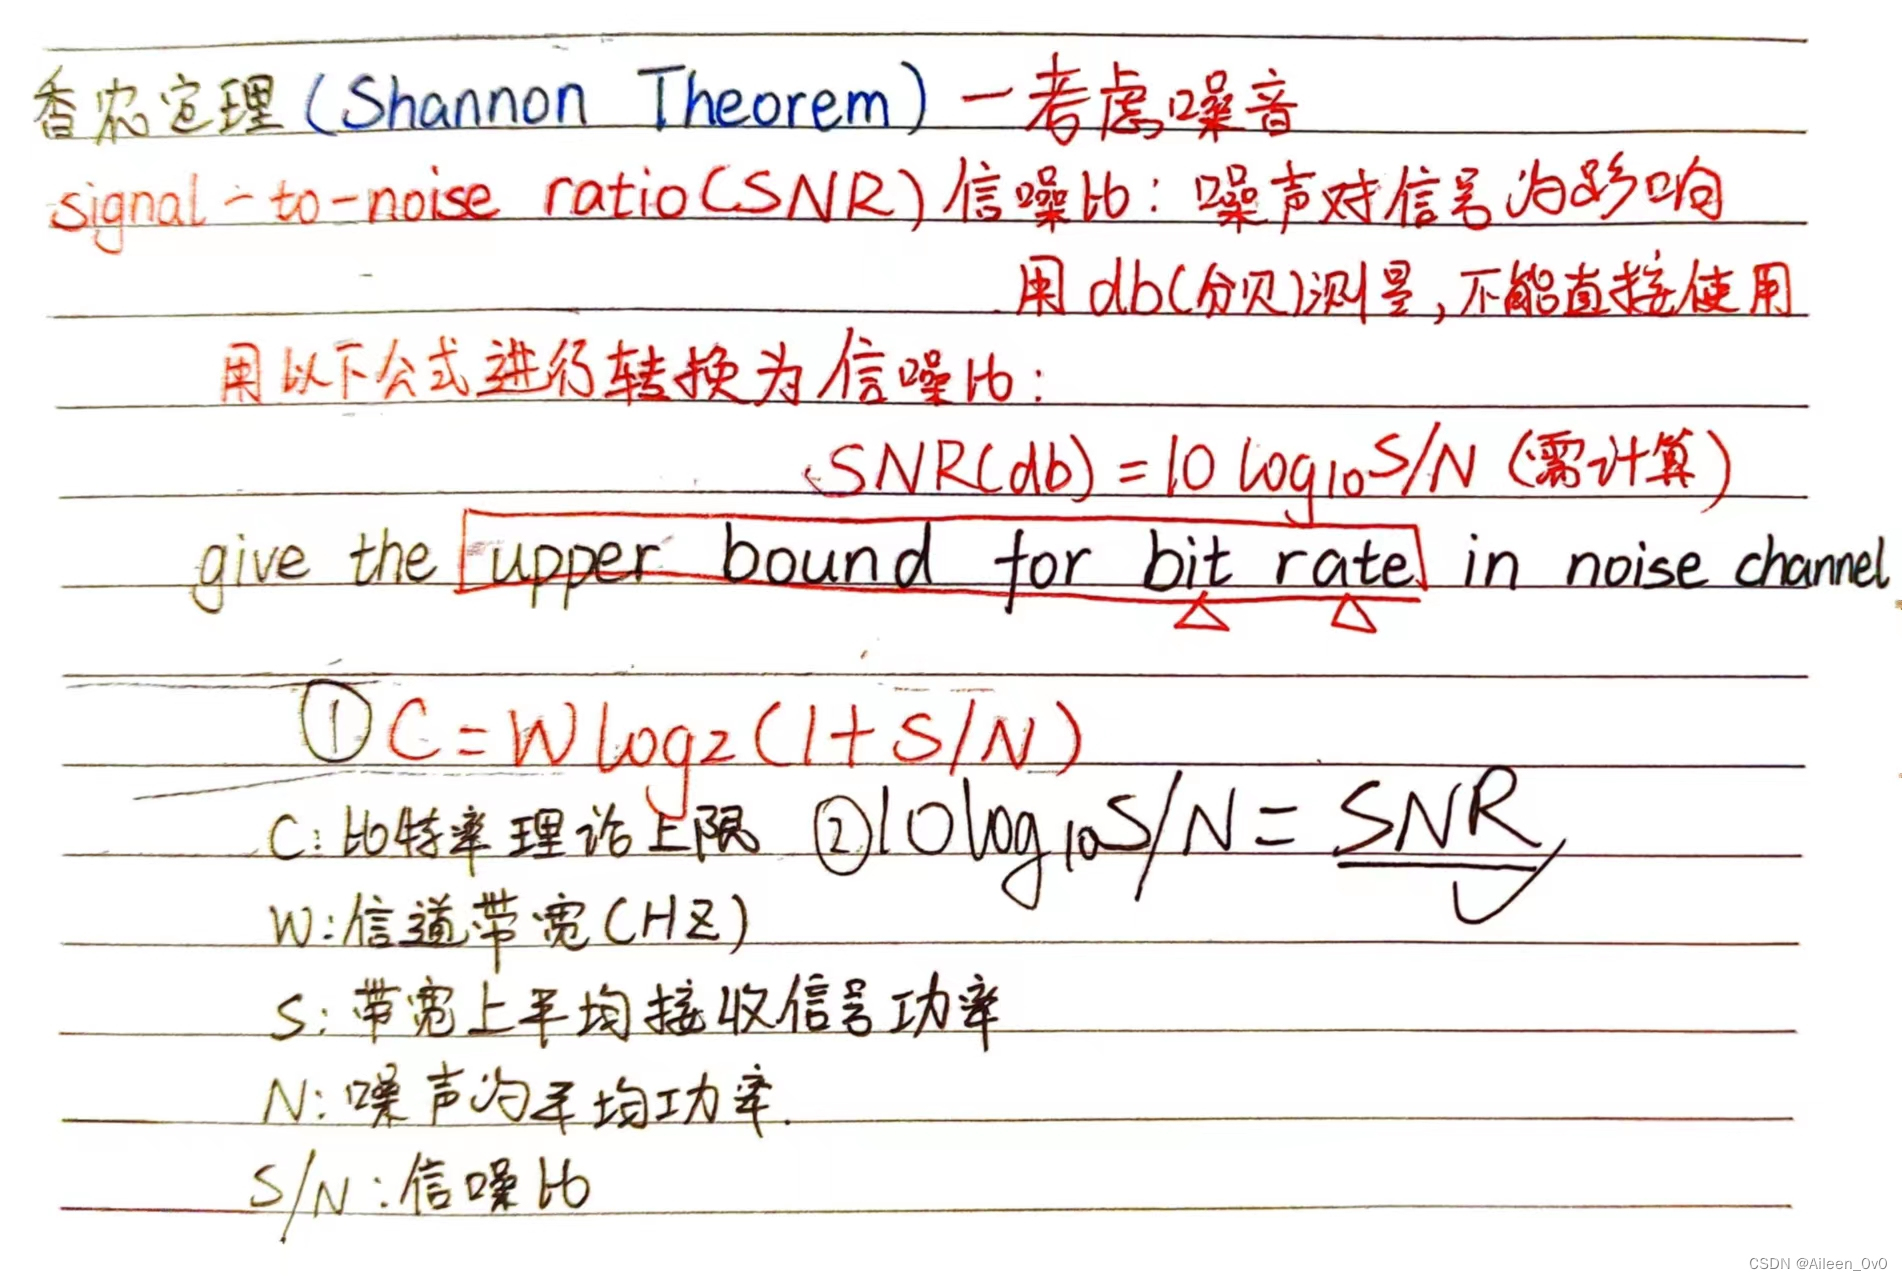 香农定理(Shannon Theorem)一考虑噪音
signal-to-noise ratio(SNR)信噪比:噪声对信号的影响
用db(分贝)测量,不能直接使用
用以下公式进行转换为信噪比:
SNR(db)=10 log10S/N (需计算)
give the upper bound for bit rate in noise channel
①C=Wlog2(1+S/N)
C:比特率理论上限 ②10log10S/N=SNR
W:信道带宽(HZ)
S:带宽上平均接收信号功率
N:噪声的平均功率.
S/N:信噪比
CSDN @Aileen_0v0